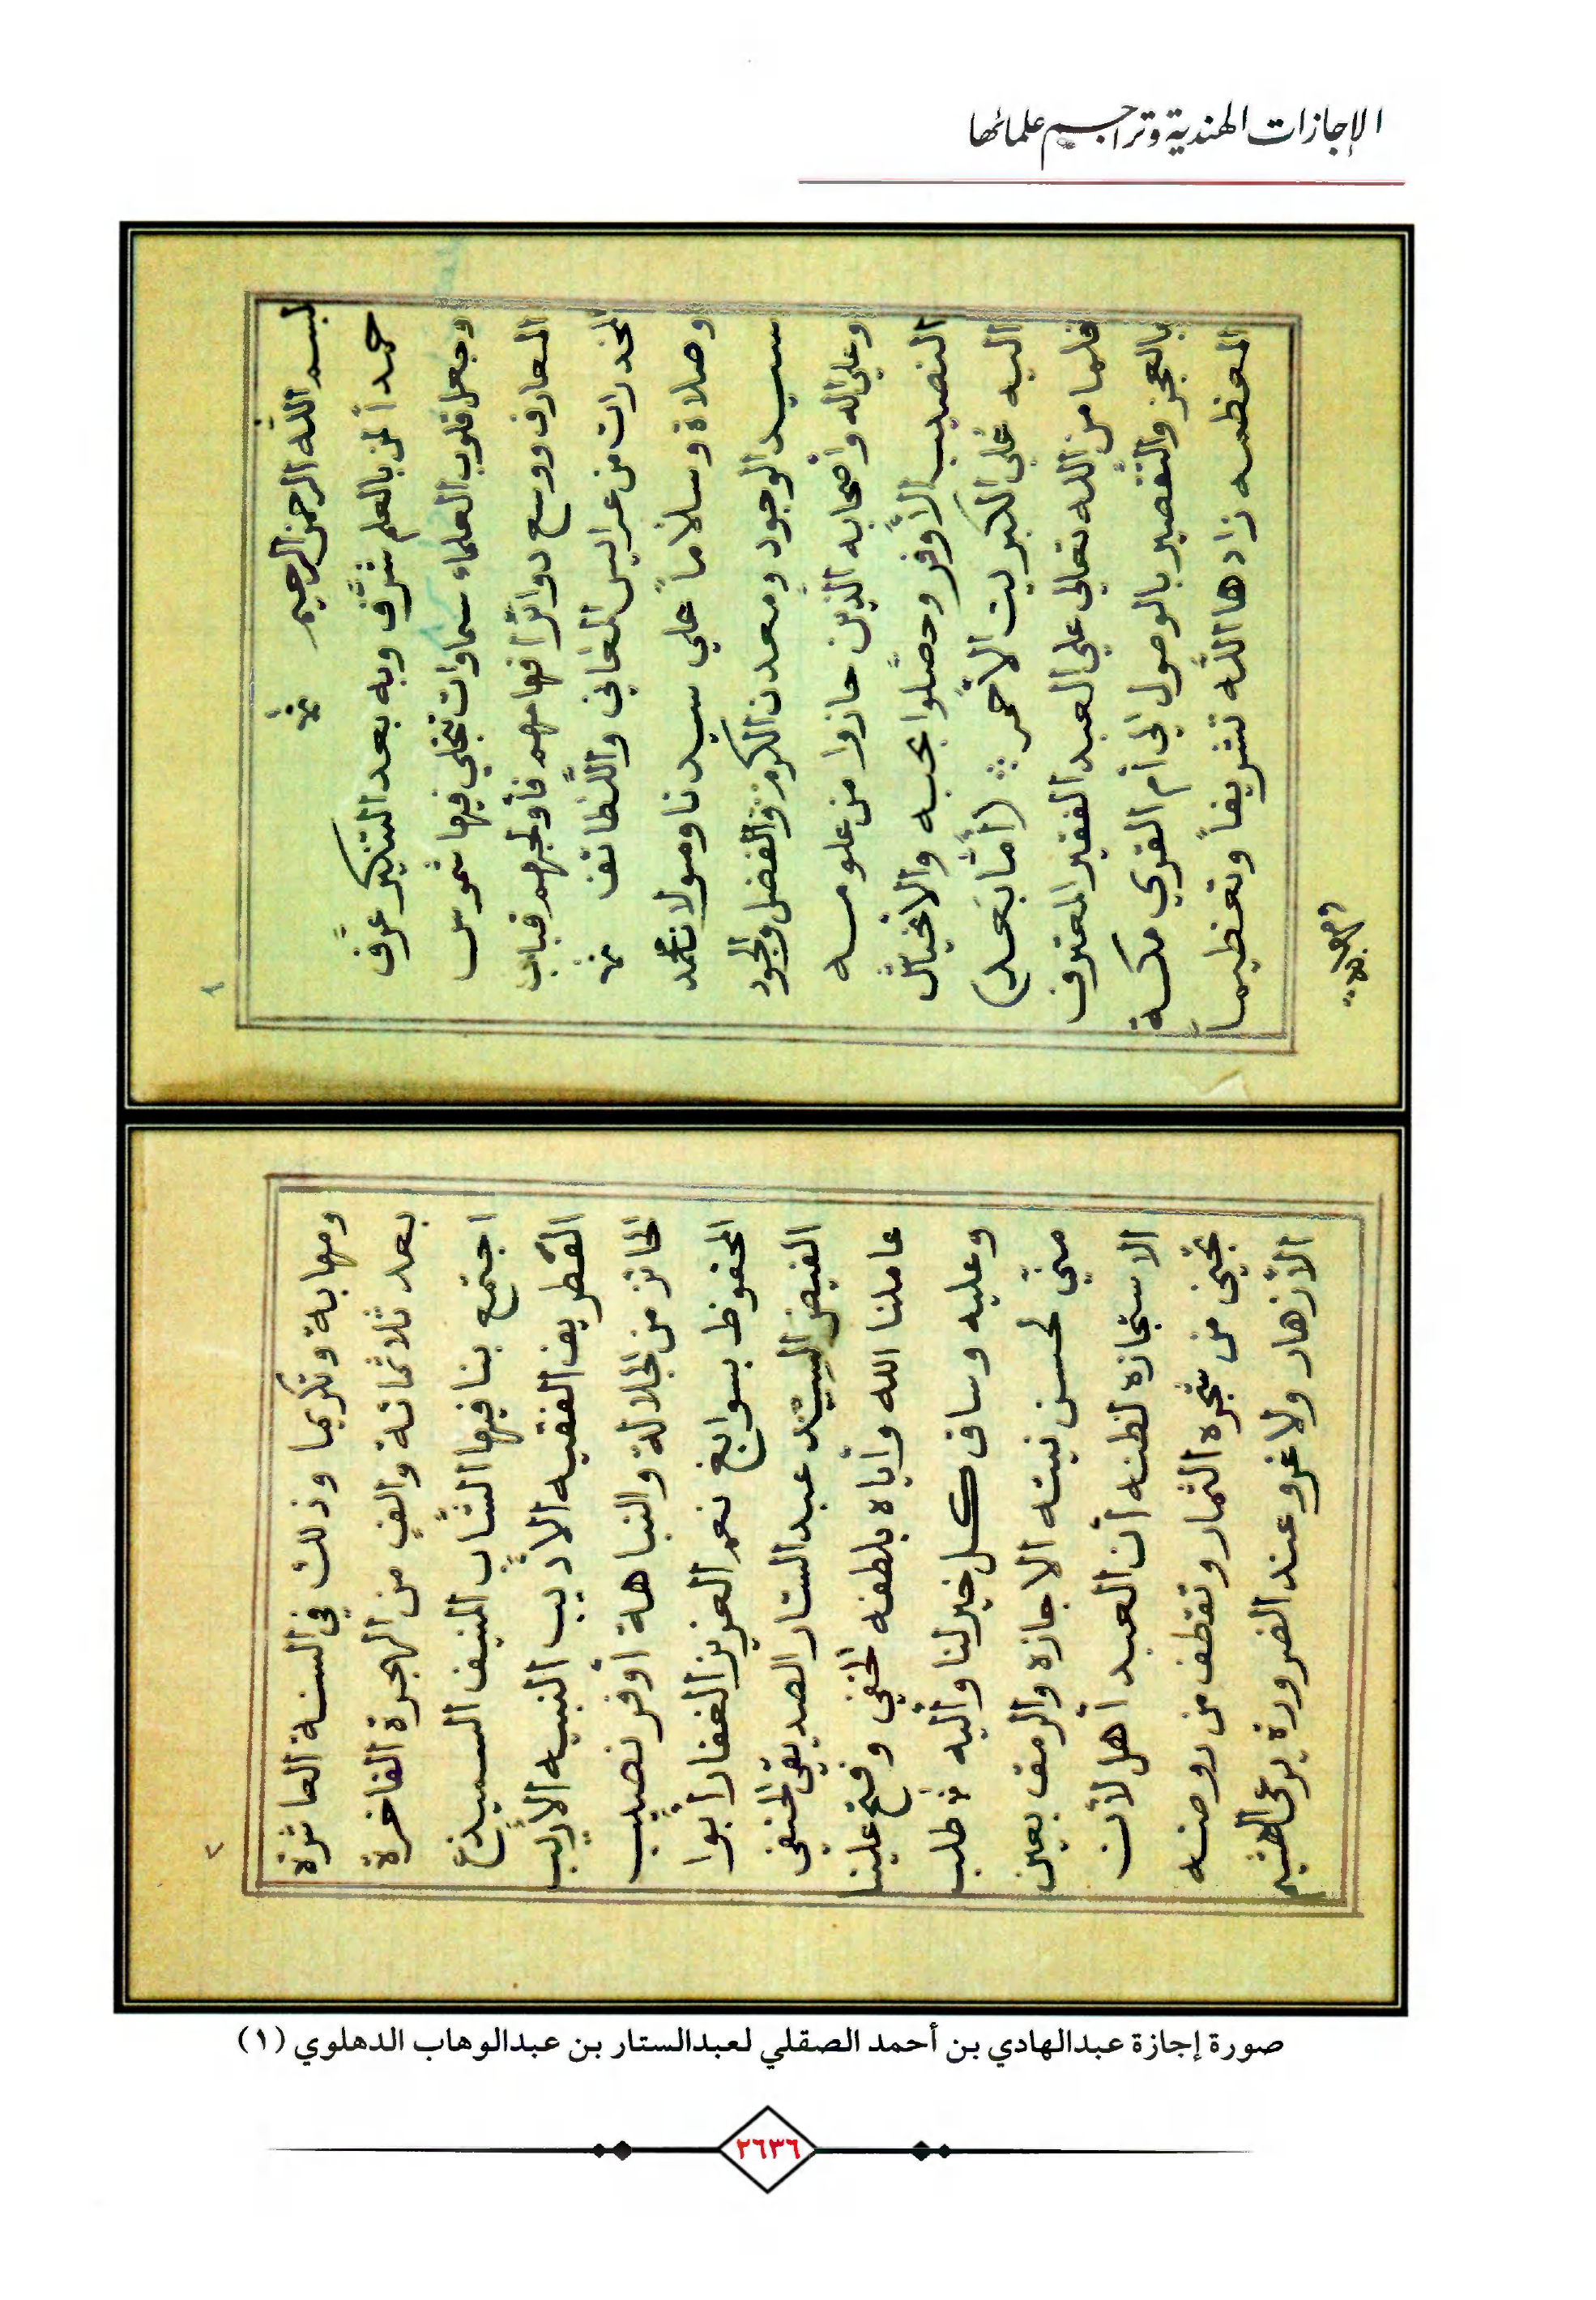 الإجازات الهندية وتراجم علمائها
١
بسم الله الرحمن الرحيم
حمداً لمن بالعلم شرَّف وبه بعد التنكير عرَّف
وجعل قلوب العلماء سماوات تجلي فيها شموس
المعارف ووسع دوائر افهامهم فأولجهم قباب
المخدرات من عرايس المعاني واللطائف
وصلاة وسلاماً علي سيدنا ومولانا محمد
سيد الوجود ومعدن الكرم والفضل والجود
وعلي اله واصحابه الذين حازوا من علومه
النصيب الأوفر وحصَّلوا بحبه والانحياش
اليه علي الكبريت الاحمر (أما بعد)
فلما من الله تعالي علي العبد الفقير المعترف
بالعجز والتقصير بالوصول الي أم القري مكة
المعظمه زادها الله تشريفاً وتعظيماً
ومهابة
٢
ومهابة وتكريما وذلك في السنة العاشرة
بعد ثلاثمائة والف من الهجرة الفاخرة
اجتمع بنا فيها الشاب المنيف السميدع
الغطريف الفقيه الأديب النبيه الأريب
الحائز من الجلالة والنباهة أوفر نصيب
المحفوظ بسوابغ نعم العزيز الغفار أبوا
الفيض السيد عبد الستار الصديقي الحنفي
عاملنا الله وأياه بلطفه الخفي وفتح علينا
وعليه وساق كل خير لنا وأليه طلب
منّي لحسن نيته الاجازه والرمق بعين
الاستجازه لظنه أن العبد أهل لأن
تجني من شجره الثمار وتقطف من روضه
الأزهار ولا غرو عند الضرورة يرعى الهشيم
صورة إجازة عبدالهادي بن أحمد الصقلي لعبدالستار بن عبدالوهاب الدهلوي (١)
٢٦٣٦